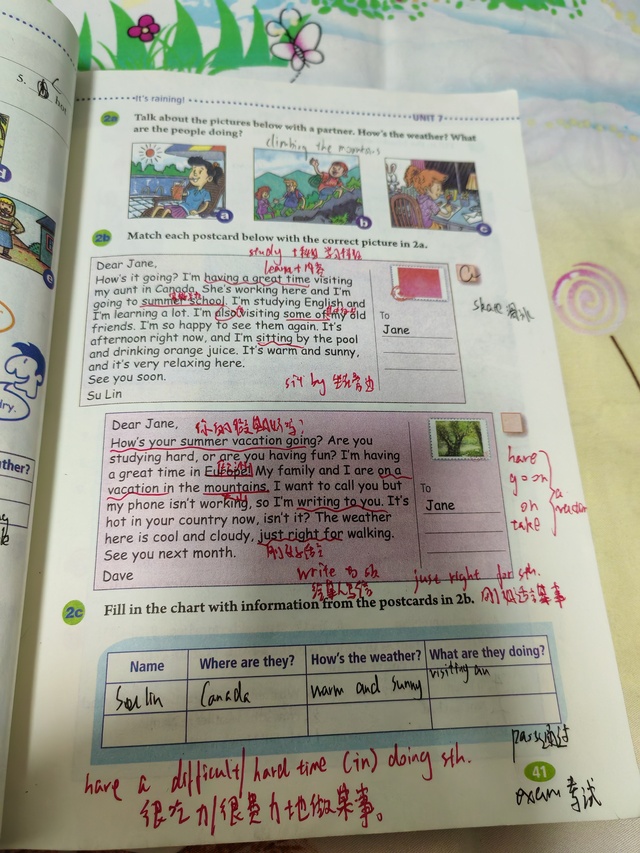 5.
It's raining!
UNIT 7
2a Talk about the pictures below with a partner. How's the weather? What
are the people doing?
climbing the mountains
a
b
c
d
e
2b Match each postcard below with the correct picture in 2a.
study
learn + 内容
Dear Jane,
How's it going? I'm having a great time visiting
my aunt in Canada. She's working here and I'm
going to summer school. I'm studying English and
I'm learning a lot. I'm also visiting some of my old
friends. I'm so happy to see them again. It's
afternoon right now, and I'm sitting by the pool
and drinking orange juice. It's warm and sunny,
and it's very relaxing here.
See you soon.
Su Lin
To
Jane
sit by 坐在旁边
Dear Jane,
How's your summer vacation going? Are you
studying hard, or are you having fun? I'm having
a great time in Europe! My family and I are on a
vacation in the mountains. I want to call you but
my phone isn't working, so I'm writing to you. It's
hot in your country now, isn't it? The weather
here is cool and cloudy, just right for walking.
See you next month.
Dave
To
Jane
have
go on
on
take
a
刚好适合
write to sb
给某人写信
just right for sth.
刚好适合某事
2c Fill in the chart with information from the postcards in 2b.
Name Where are they? How's the weather? What are they doing?
Su Lin Canada warm and sunny visiting an
have a difficult/hard time (in) doing sth.
很吃力/很费力地做某事。
pass 通过
41
exam 考试